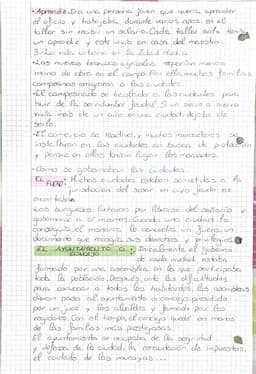 • Aprendiz: Era una persona joven que quería aprender
el oficio y trabajaba durante varios años en el
taller sin recibir un salario. Cada taller solía tener
un aprendiz y este vivía en casa del maestro.
3.- La vida urbana en la Edad Media.
- Las nuevas técnicas agrícolas requerían menos
mano de obra en el campo. Por ello muchas familias
campesinas emigraron a las ciudades.
- El campesinado se trasladó a las ciudades para
huir de la servidumbre feudal. Si un siervo o sierva
vivía más de un año en una ciudad dejaba de
serlo.
- El comercio se reactivó, y muchos mercaderes se
instalaron en las ciudades en busca de protección
y porque en ellas tenían lugar los mercados.
- Cómo se gobernaban las ciudades.
EL FUERO: Muchas ciudades estaban sometidas a la
jurisdicción del señor en cuyo feudo se
encontraban.
Los burgueses lucharon por librarse del señorío y
gobernarse a sí mismos. Cuando una ciudad lo
conseguía el monarca le concedía un fuero, un
documento que recogía sus derechos y privilegios.
EL AYUNTAMIENTO O CONCEJO: Inicialmente, el gobierno
de cada ciudad estaba
formado por una asamblea, en la que participaba
toda la población. Después, ante las dificultades
para convocar a todos los habitantes, las asambleas
dieron paso al ayuntamiento o concejo, presidido
por un juez y los alcaldes y formado por los
regidores. Con el tiempo, el concejo quedó en manos
de las familias más prestigiosas.
El ayuntamiento se ocupaba de la seguridad
y defensa de la ciudad, la recaudación de impuestos,
el cuidado de las murallas...